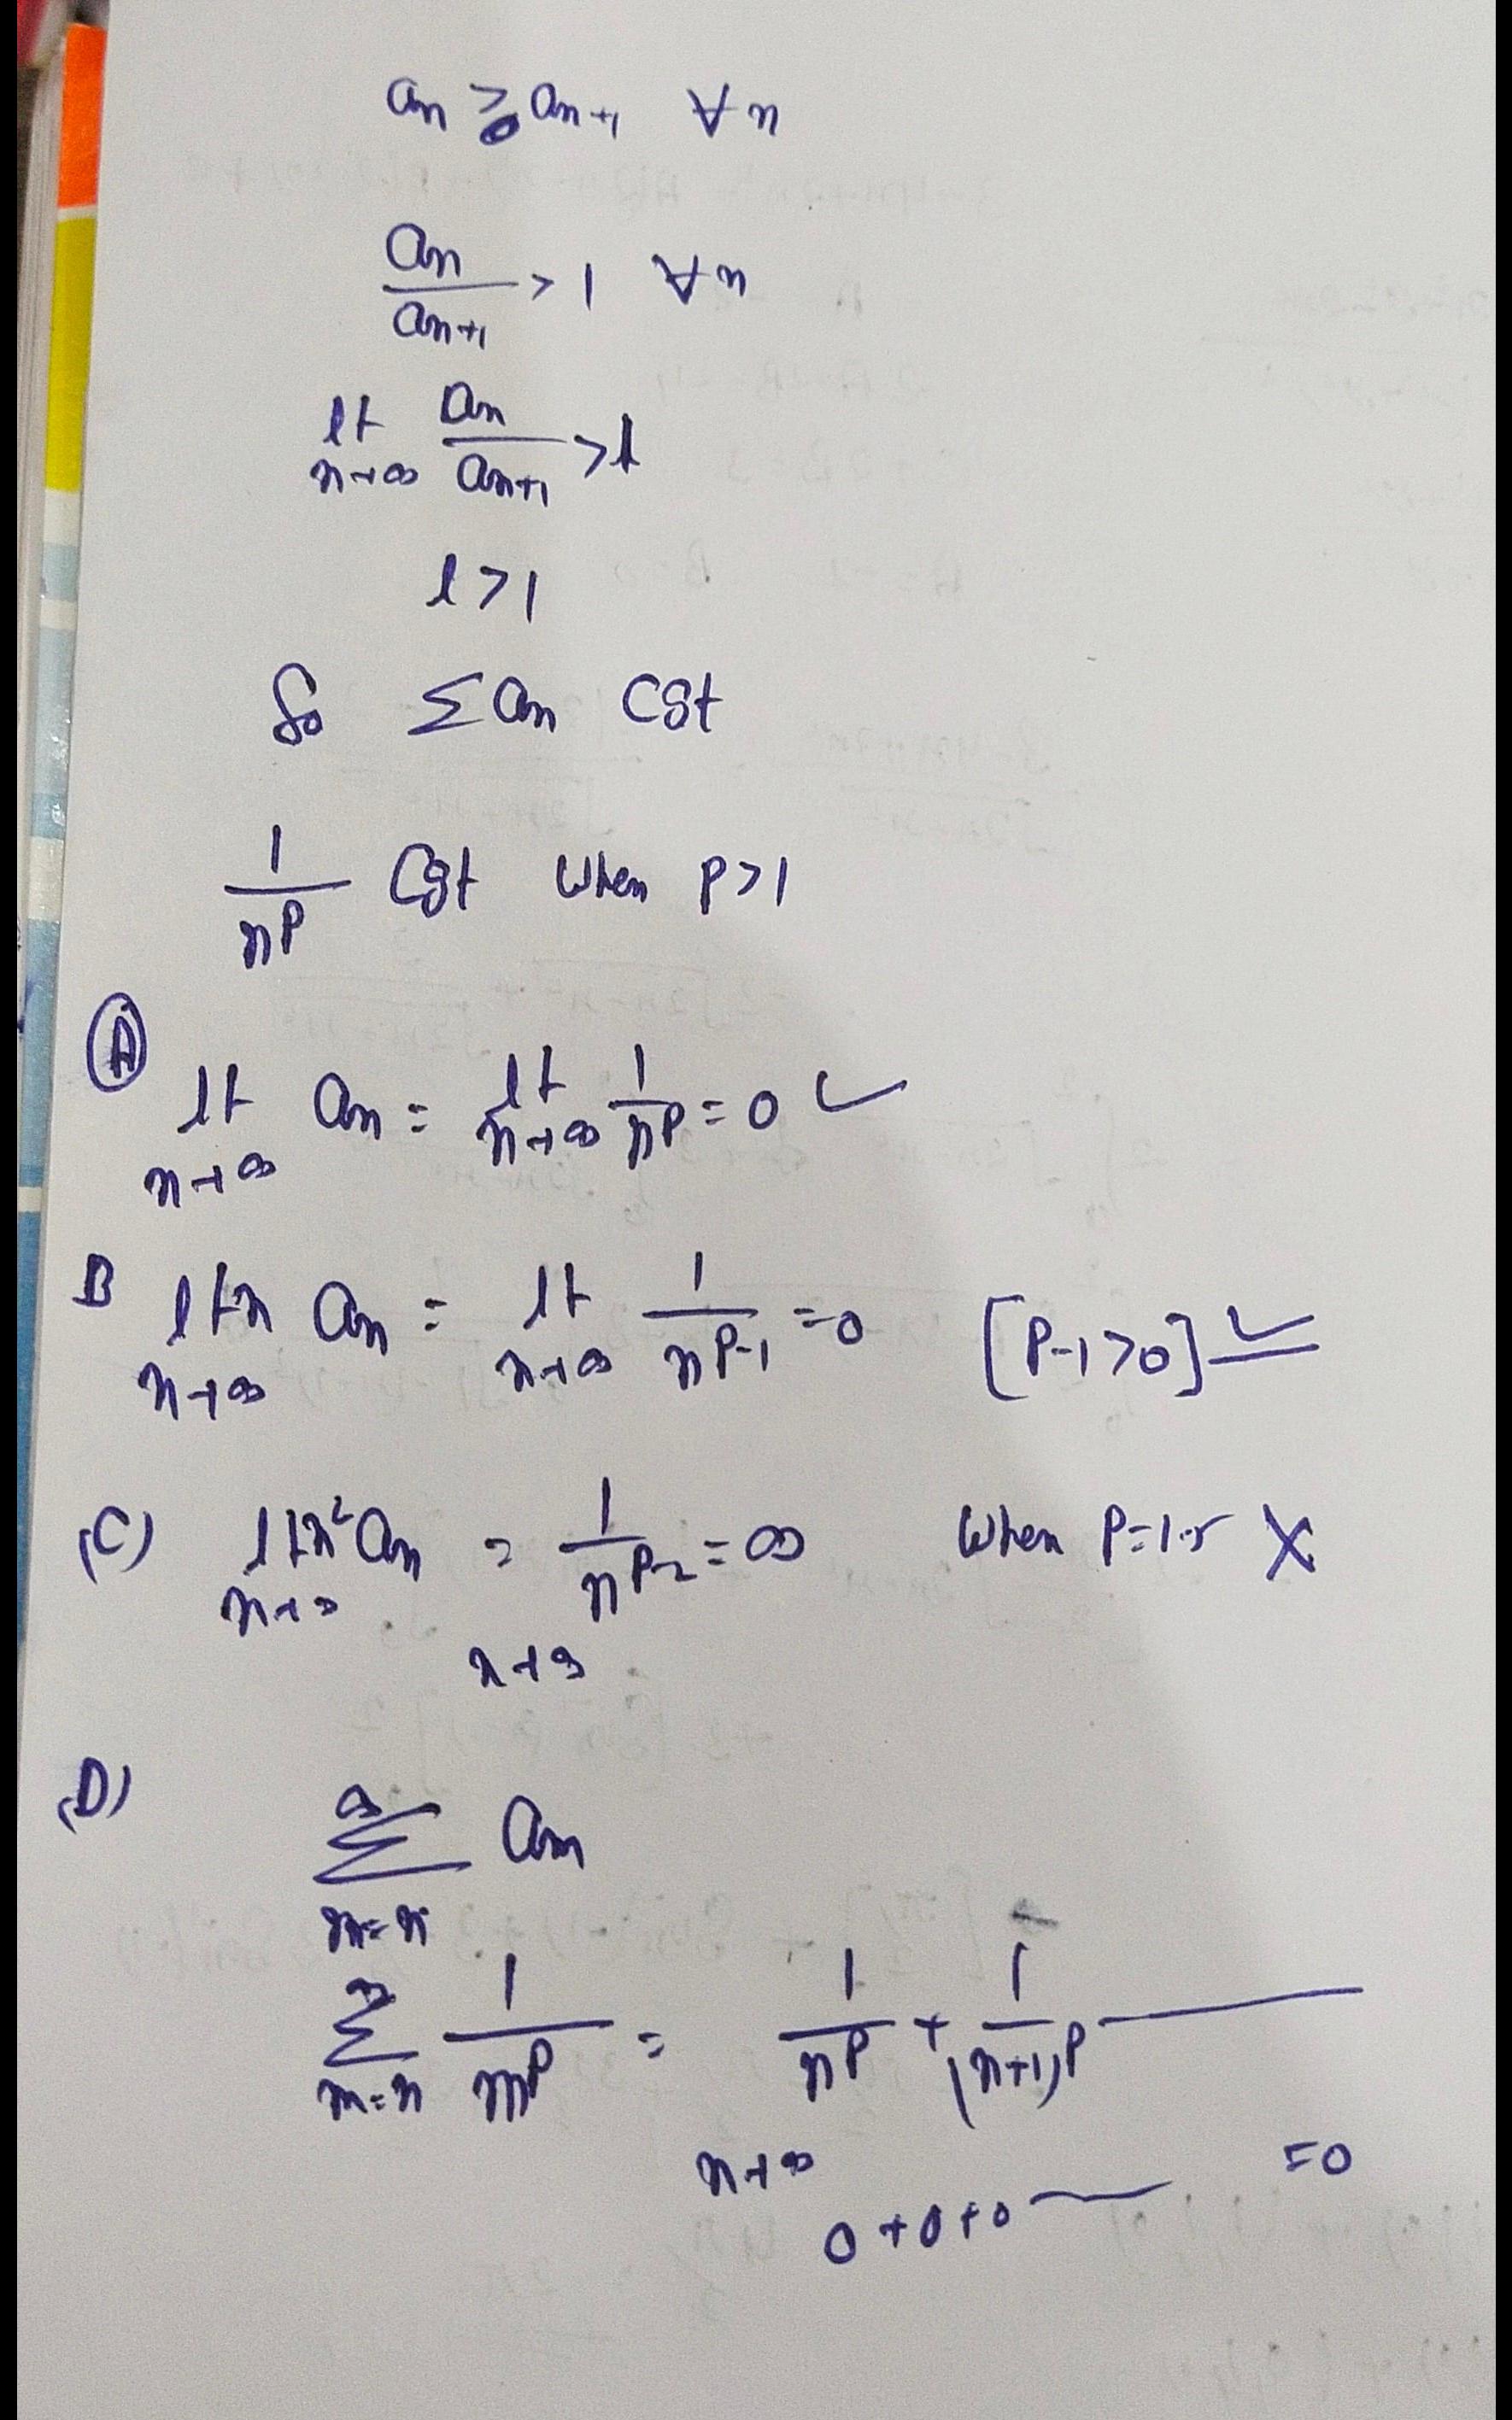 an ≥ an+1 ∀ n
an/an+1 > 1 ∀ n
lt n→∞ an/an+1 > 1
l > 1
So Σ an Cgt
1/n^p Cgt When p>1
(A)
lt n→∞ an = lt n→∞ 1/n^p = 0 ✓
B lt n→∞ n an = lt n→∞ 1/n^p-1 = 0 [p-1>0] ✓
(C) lt n→∞ n² an = 1/n^p-2 = ∞ When p=1.5 X
n→∞
(D)
∞ Σ m=n am
∞ Σ m=n 1/m^p = 1/n^p + 1/(n+1)^p
n→∞
0+0+0 =0